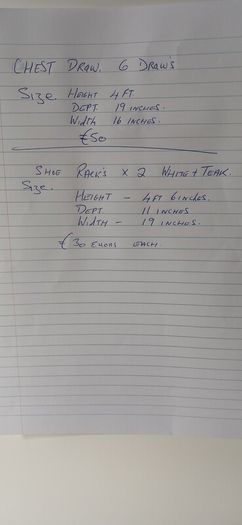 CHEST DRAW. 6 DRAW'S
SIZE. HEIGHT 4 FT
DEPT 19 INCHES.
WIDTH 16 INCHES.
€50
SHOE RACK'S X 2 WHITE + TEAK.
SIZE.
HEIGHT - 4 FT 6 INCHES.
DEPT 11 INCHES
WIDTH - 19 INCHES.
€30 EUORS EACH.